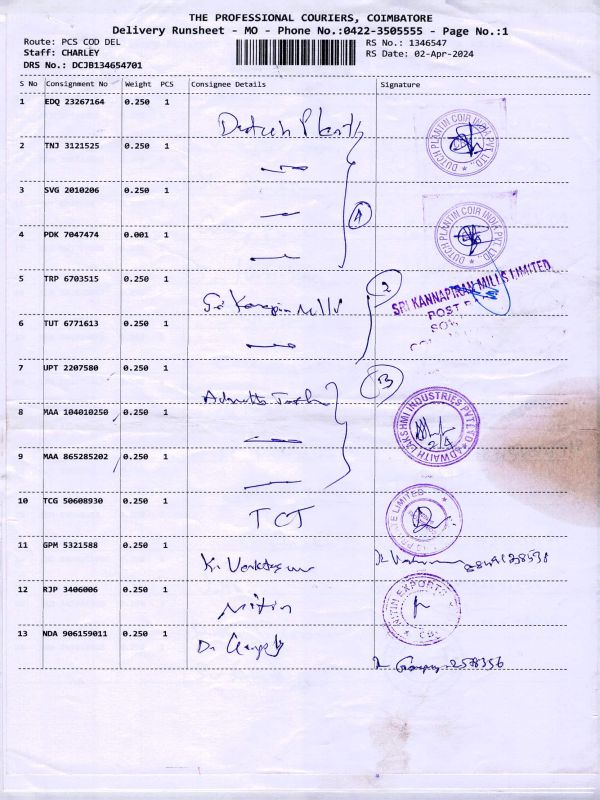 THE PROFESSIONAL COURIERS, COIMBATORE
Delivery Runsheet - MO - Phone No.:0422-3505555 - Page No.:1
Route: PCS COD DEL
Staff: CHARLEY
DRS No.: DCJB134654701
RS No.: 1346547
RS Date: 02-Apr-2024
S No Consignment No Weight PCS Consignee Details Signature
1 EDQ 23267164 0.250 1
DUTCH PLANTIN COIR INDIA PVT. LTD.
2 TNJ 3121525 0.250 1
3 SVG 2010206 0.250 1
4 PDK 7047474 0.001 1
1
DUTCH PLANTIN COIR INDIA PVT. LTD.
5 TRP 6703515 0.250 1
2
SRI KANNAPIRAN MILLS LIMITED
POST
6 TUT 6771613 0.250 1
7 UPT 2207580 0.250 1
3
8 MAA 104010250 0.250 1
ADWAITH LAKSHMI INDUSTRIES PVT LTD
2/4
9 MAA 865285202 0.250 1
10 TCG 50608930 0.250 1 TCT
11 GPM 5321588 0.250 1
12 RJP 3406006 0.250 1 Nitin
NITIN EXPORT
13 NDA 906159011 0.250 1 Dr
2578356